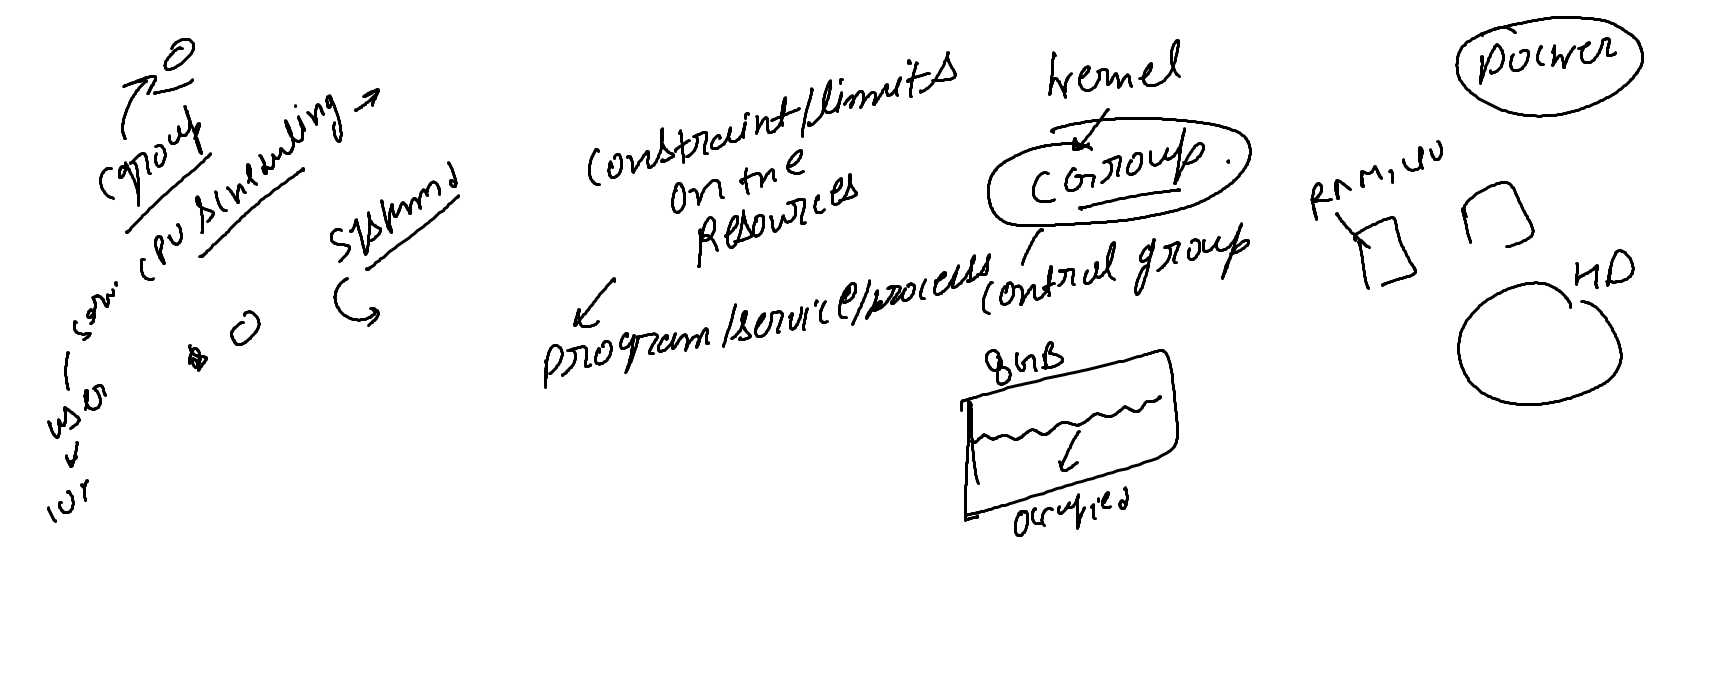 cgroup
CPU scheduling
systemd
user
Constraint/limits
on the
Resources
program/service/process
kernel
CGroup.
control group
8GB
occupied
Docker
RAM, CPU
HD